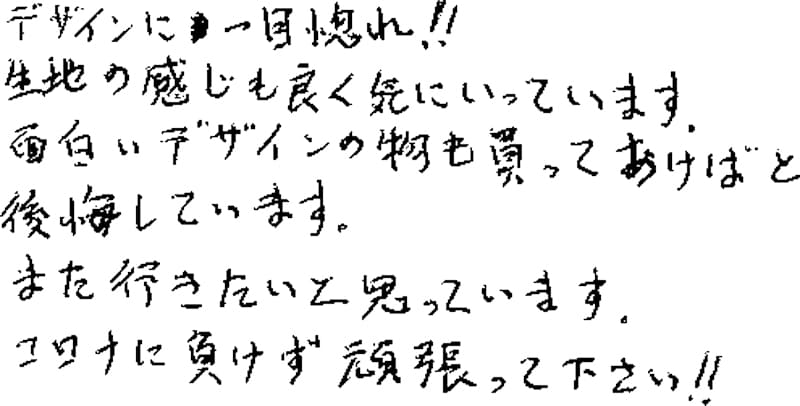 デザインに一目惚れ!!
生地の感じも良く気にいっています。
面白いデザインの物も買ってあけばと
後悔しています。
また行きたいと思っています。
コロナに負けず頑張って下さい!!